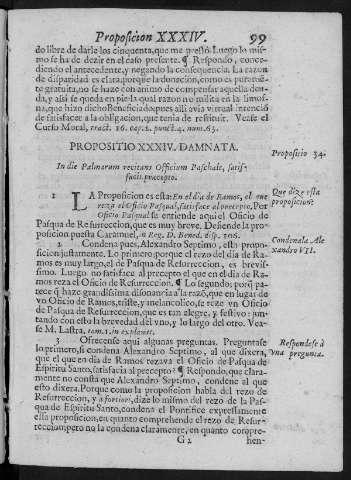 Proposicion XXXIV. 99
do libre de darle los cinquenta, que me prestò. Luego lo mis-
mo se ha de dezir en el caso presente. ¶ Respondo, conce-
diendo el antecedente, y negando la consequencia. La razon
de disparidad es clara, porque la donaciòn, como es puramẽ-
te gratuita, no se haze con animo de compensar aquella deu-
da, y assi se queda en pie la qual razon no milita en la limos-
na, que hizo dicho Beneficiado, pues alli avia virtual intenciõ
de satisfacer a la obligacion, que tenia de restituir. Vease el
Curso Moral, tract. 16. cap. 2. punct. 4. num. 63.
PROPOSITIO XXXIV. DAMNATA.
Propositio 34.
In die Palmarum recitans Officium Paschale, satis-
facit præcepto.
1 LA Proposicion es esta: En el dia de Ramos, el que
reza el Oficio Pasqual, satisface al precepto. Por
Oficio Pasqual se entiende aqui el Oficio de
Pasqua de Resurreccion, que es muy breve. Defiende la pro-
posicion puesta Caramuel, in Reg. D. Bened. disp. 106.
Que dize esta
proposicion:
2 Condena pues, Alexandro Septimo, esta propo-
sicion justamente. Lo primero porque el rezo del dia de Ra-
mos es muy largo, el de Pasqua de Resurreccion, es brevis-
simo. Luego no satisface al precepto el que en el dia de Ra-
mos reza el Oficio de Resurreccion. ¶ Lo segundo; porq̃ pa-
rece q̃ haze grandissima disonancia a la razõ, que en lugar de
vn Oficio de Ramos, triste, y melancolico, se reze vn Oficio
de Pasqua de Resurreccion, que es tan alegre, y festivo: jun-
tando con esto la brevedad del vno, y lo largo del otro. Vea-
se M. Lastra, tom. 1. in extenso.
Condenala Ale
xandro VII.
3 Ofrecense aqui algunas preguntas. Preguntase
lo primero, si condena Alexandro Septimo, al que dixera,
que el que en dia de Ramos rezava el Oficio de Pasqua de
Espiritu Santo, satisfacia al precepto? ¶ Respondo, que clara-
mente no consta que Alexandro Septimo, condene al que
esto dixera. Porque como la proposicion habla del rezo de
Resurreccion, y à fortiori, dize lo mismo del rezo de la Pas-
qua de Espiritu Santo, condena el Pontifice expressamente
essa proposicion, en quanto comprehende el rezo de Resur-
reccion; pero no la condena claramente, en quanto compre-
Respondese à
vna pregunta.
G 2 hen-